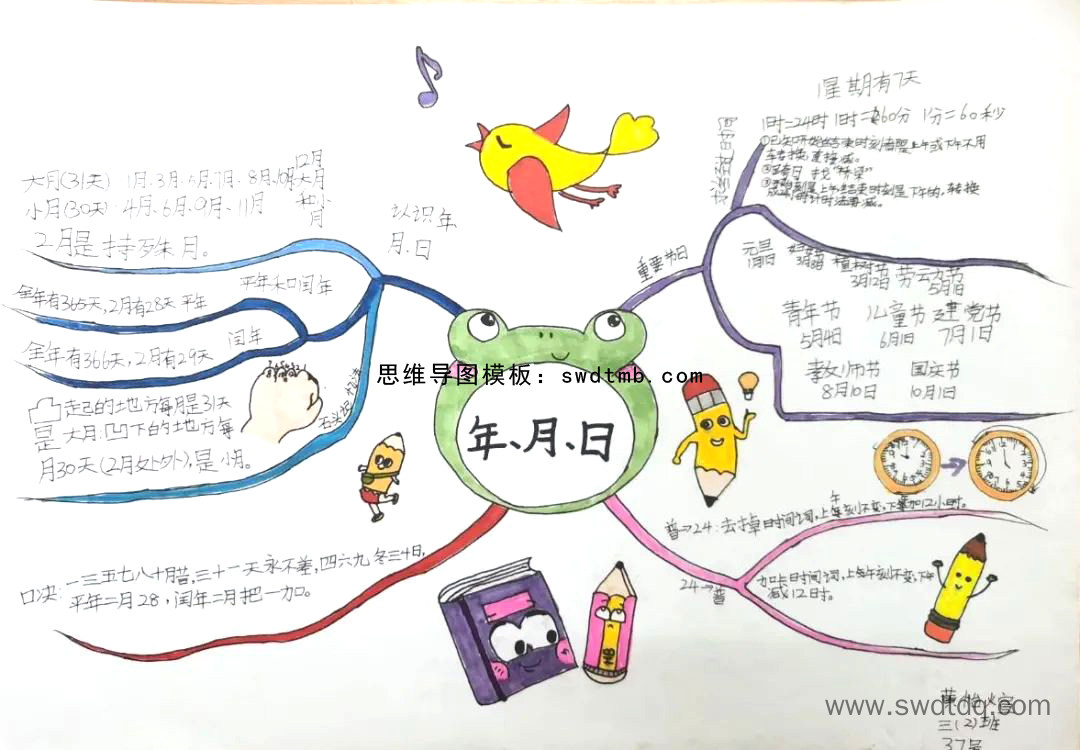 年、月、日
思维导图模板：swdtmb.com
认识年
月、日
大月(31天) 1月.3月.5月.7月.8月.10月
12月
小月(30天).4月、6月、9月、11月
2月是特殊月。
平年和闰年
全年有365天,2月有28天 平年
闰年
全年有366天,2月有29天
凸起的地方每月是31天
是大月.凹下的地方每
月30天(2月处外),是小月。
口决:一三五七八十月昔,三十一天永不差,四六九冬三十日,
平年二月28,闰年二月把一加。
重要节日
1星期有7天
1日=24时 1时=60分 1分=60秒
元旦
1月1日
3月8日
植树节
3月12日
劳动节
5月1日
青年节
5月4日
儿童节
6月1日
建党节
7月1日
教师节
8月10日
国庆节
10月1日
普→24:去掉时间词,上午时刻不变,下午加12小时。
24→普
加上时间词,上午时刻不变,下午
减12时。
三(2)班
37号
www.swdtdq.com